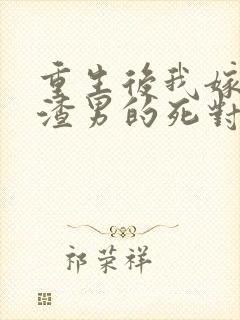 重生後我嫁
渣男的死對
祁荣祥